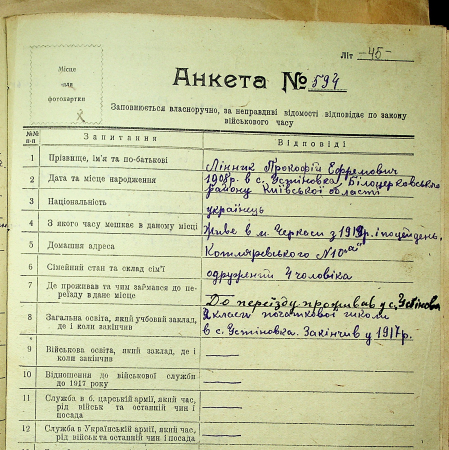 Літ -45-
Місце
для
фотокартки
Анкета № 594
Заповнюється власноручно, за неправдиві відомості відповідає по закону
військового часу
№№ п-п Запитання Відповіді
1 Прізвище, ім'я та по-батькові Лінник Прокофій Ефремович
2 Дата та місце народження 1908р. в с. Устіновка, Білоцерковського
району Київської області
3 Національність українець
4 З якого часу мешкає в даному місці Живе в м. Черкаси з 1919р. і по цей день.
5 Домашня адреса Котляревського N 10"а"
6 Сімейний стан та склад сім'ї одружений 4 чоловіка
7 Де проживав та чим займався до переїзду в дане місце До переїзду проживав у с. Устіновка
8 Загальна освіта, який учбовий заклад, де і коли закінчив класи початкової школи
в с. Устіновка. Закінчив у 1917р.
9 Військова освіта, який заклад, де і коли закінчив
10 Відношення до військової служби до 1917 року
11 Служба в б. царській армії, який час, рід військ та останній чин і посада
12 Служба в Українській армії, який час, рід військ та останній чин і посада